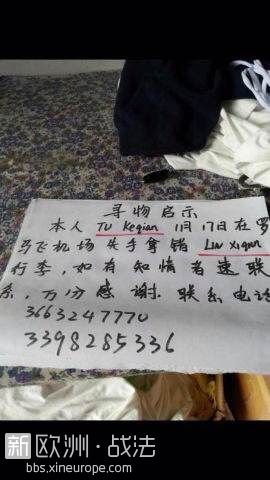 寻物启示
本人 TU Keqian 11月17日在罗
马飞机场失手拿错 Liu Xiqun
行李，如有知情者速联
系，万分感谢.联系电话
3663247770
3398285336
新欧洲·战法
bbs.xineurope.com